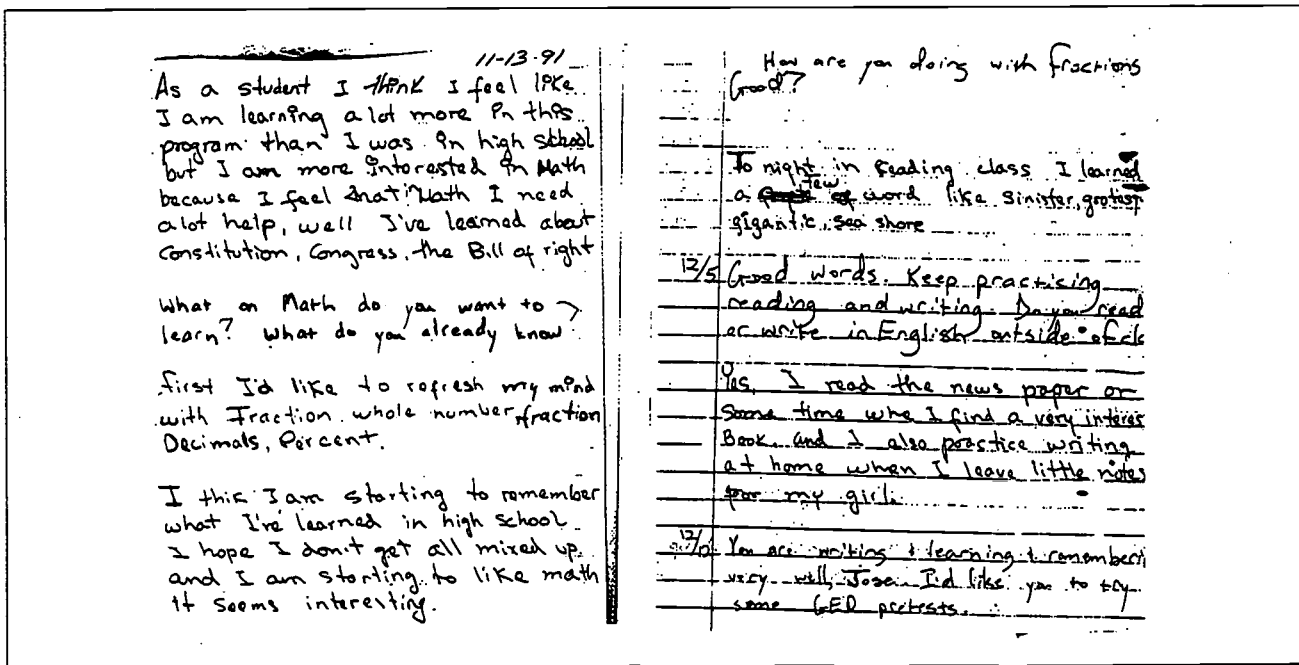 11-13-91
As a student I think I feel like
I am learning alot more in this
program than I was in high school
but I am more interested in Math
because I feel that Math I need
alot help, well I've learned about
Constitution, Congress, the Bill of right
What on Math do you want to
learn? What do you already know?
first I'd like to refresh my mind
with Fraction whole number, fraction
Decimals, Percent.
I thik I am starting to remember
what I've learned in high school
I hope I don't get all mixed up
and I am starting to like math
it seems interesting.
How are you doing with fractions
Good?
To night in reading class I learned
a few word like sinister, grotesp
gigantic, sea shore
12/5 Good words. Keep practising
reading and writing. Do you read
or write in English outside of cl
Yes, I read the news paper or
some time whe I find a very interes
Book, and I also practice writing
at home when I leave little notes
for my girl.
You are writing + learning + rememberi
very well, Jose. I'd like you to try
some GED pretests.